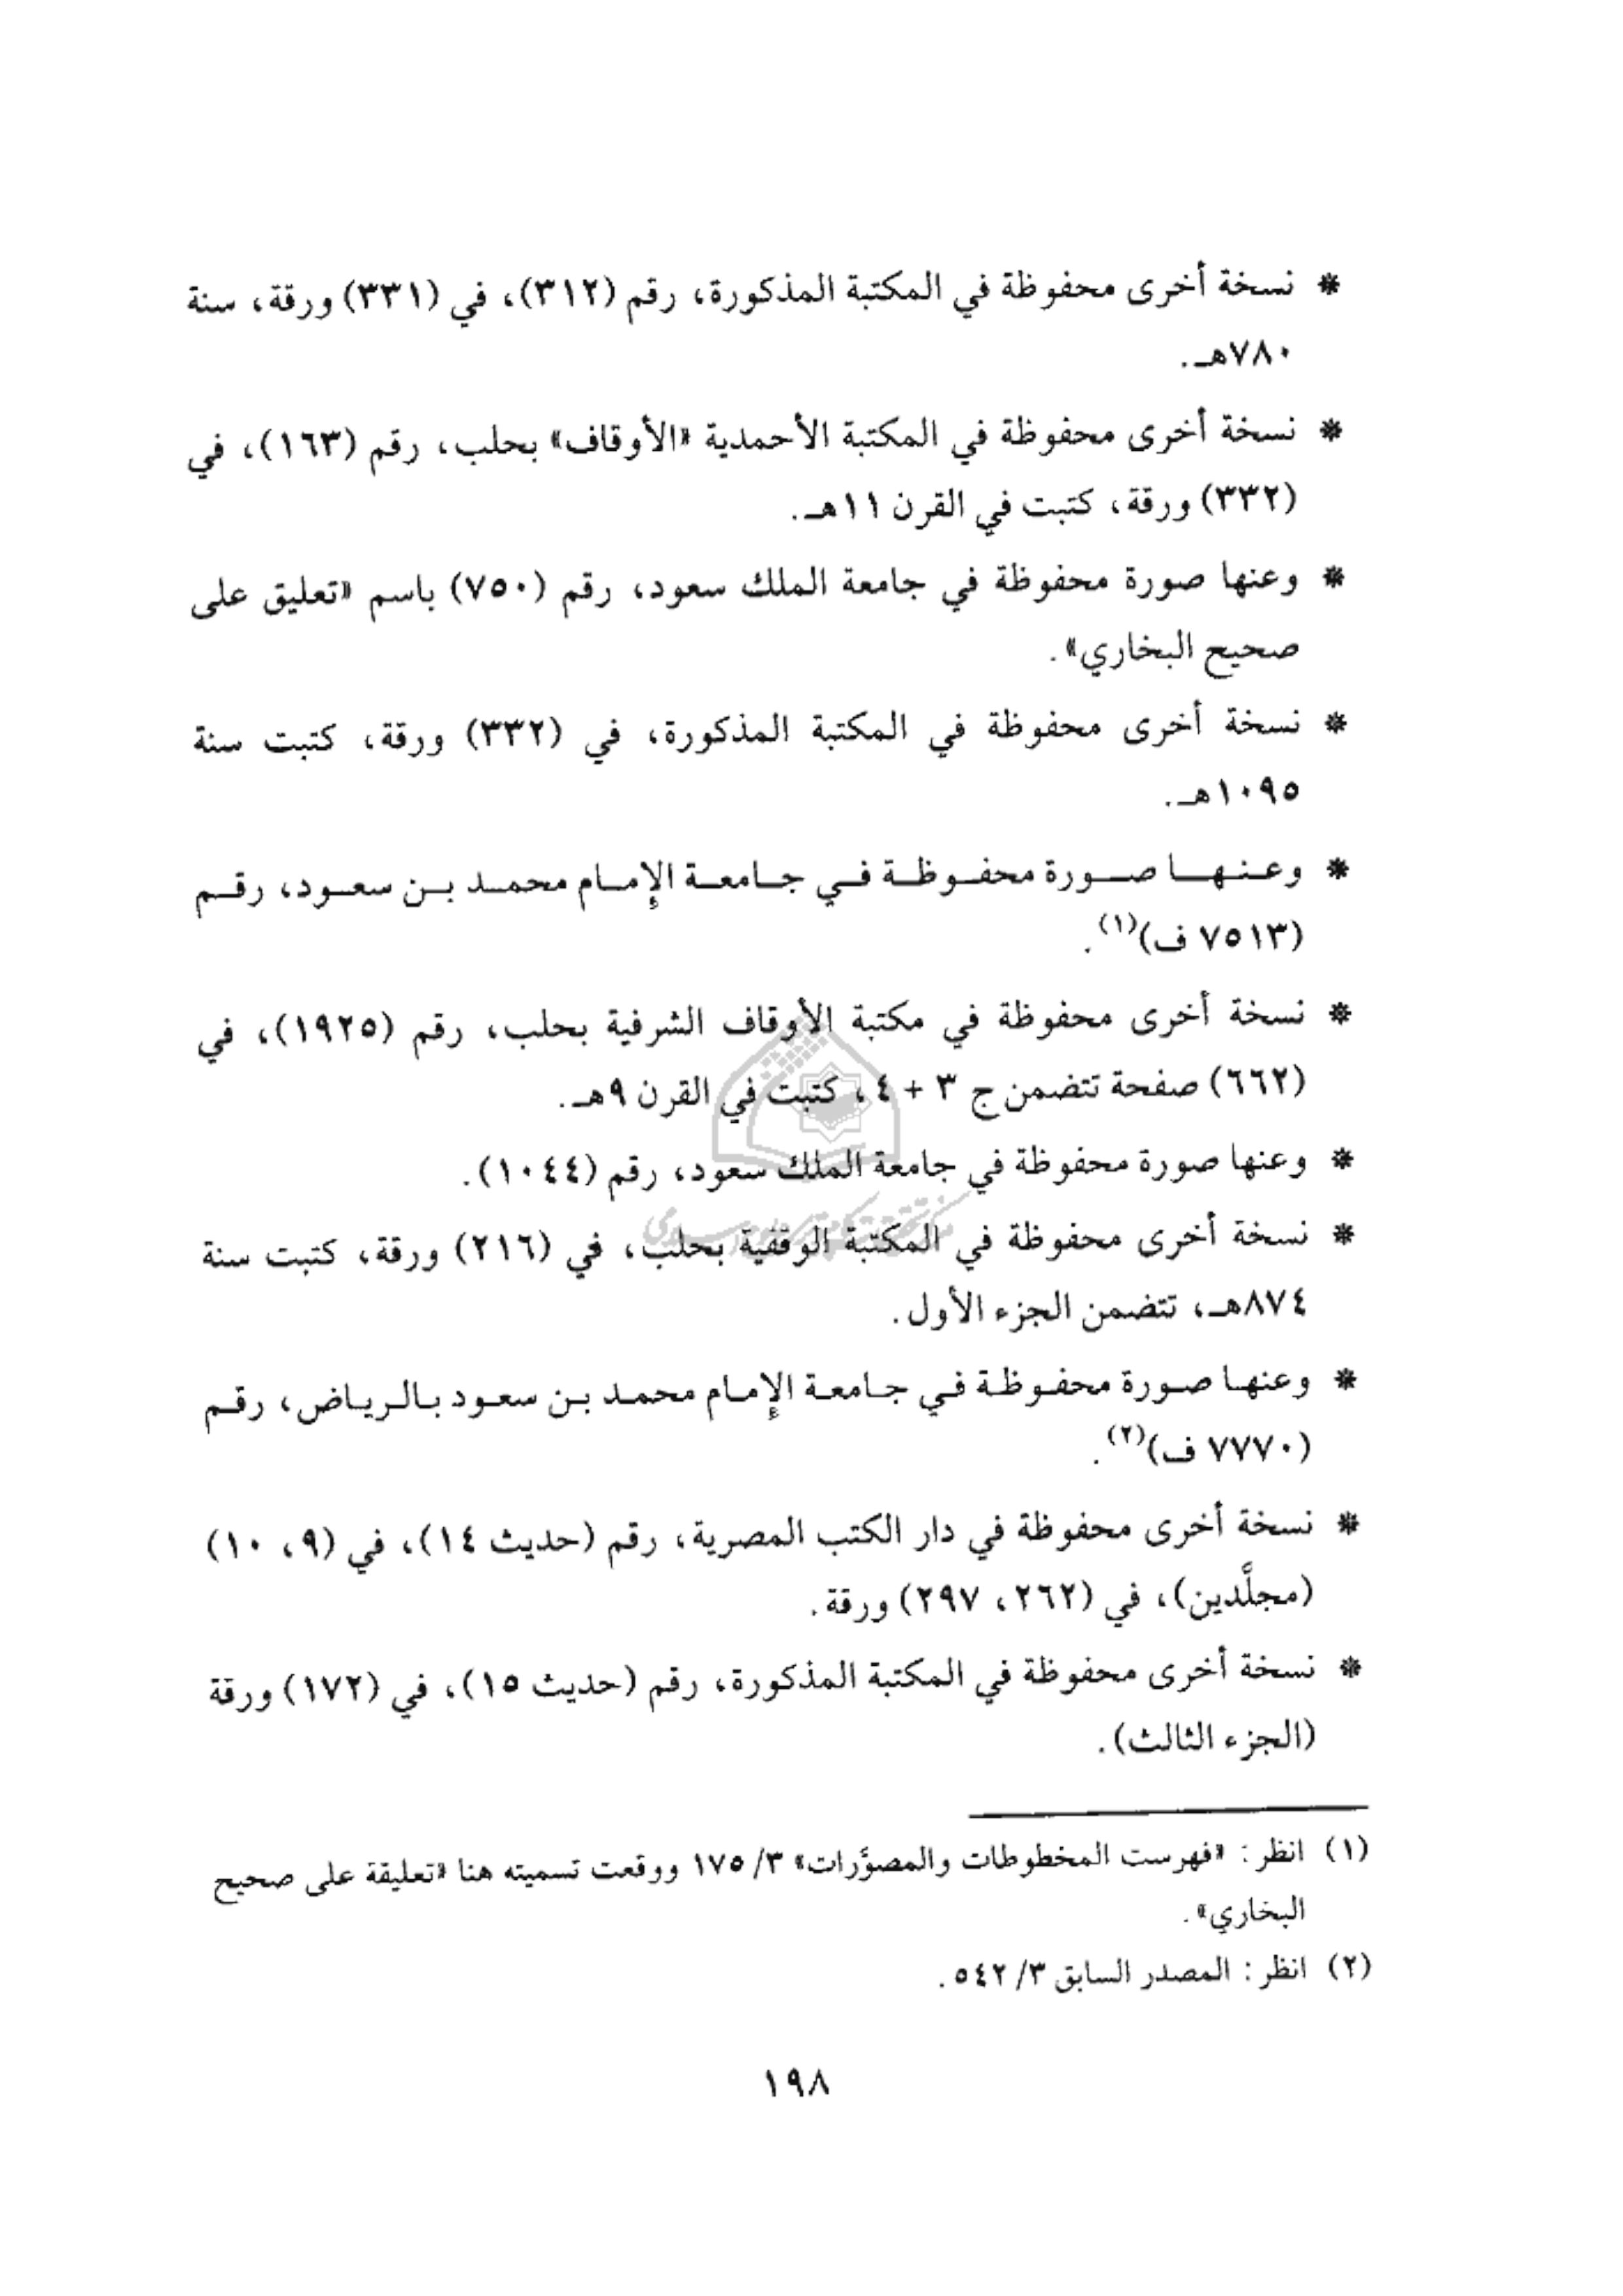 * نسخة أخرى محفوظة في المكتبة المذكورة، رقم (٣١٢)، في (٣٣١) ورقة، سنة
٧٨٠هـ.
* نسخة أخرى محفوظة في المكتبة الأحمدية «الأوقاف» بحلب، رقم (١٦٣)، في
(٣٣٢) ورقة، كتبت في القرن ١١هـ.
* وعنها صورة محفوظة في جامعة الملك سعود، رقم (٧٥٠) باسم «تعليق على
صحيح البخاري».
* نسخة أخرى محفوظة في المكتبة المذكورة، في (٣٣٢) ورقة، كتبت سنة
١٠٩٥هـ.
* وعنها صورة محفوظة في جامعة الإمام محمد بن سعود، رقم
(٧٥١٣ ف)(١).
* نسخة أخرى محفوظة في مكتبة الأوقاف الشرفية بحلب، رقم (١٩٢٥)، في
(٦٦٢) صفحة تتضمن ج ٣ + ٤، كتبت في القرن ٩هـ.
* وعنها صورة محفوظة في جامعة الملك سعود، رقم (١٠٤٤).
* نسخة أخرى محفوظة في المكتبة الوقفية بحلب، في (٢١٦) ورقة، كتبت سنة
٨٧٤هـ، تتضمن الجزء الأول.
* وعنها صورة محفوظة في جامعة الإمام محمد بن سعود بالرياض، رقم
(٧٧٧٠ ف)(٢).
* نسخة أخرى محفوظة في دار الكتب المصرية، رقم (حديث ١٤)، في (٩، ١٠)
(مجلَّدين)، في (٢٦٢، ٢٩٧) ورقة.
* نسخة أخرى محفوظة في المكتبة المذكورة، رقم (حديث ١٥)، في (١٧٢) ورقة
(الجزء الثالث).
(١) انظر: «فهرست المخطوطات والمصوَّرات» ٣/ ١٧٥ ووقعت تسميته هنا «تعليقة على صحيح
البخاري».
(٢) انظر: المصدر السابق ٣/ ٥٤٢.
١٩٨